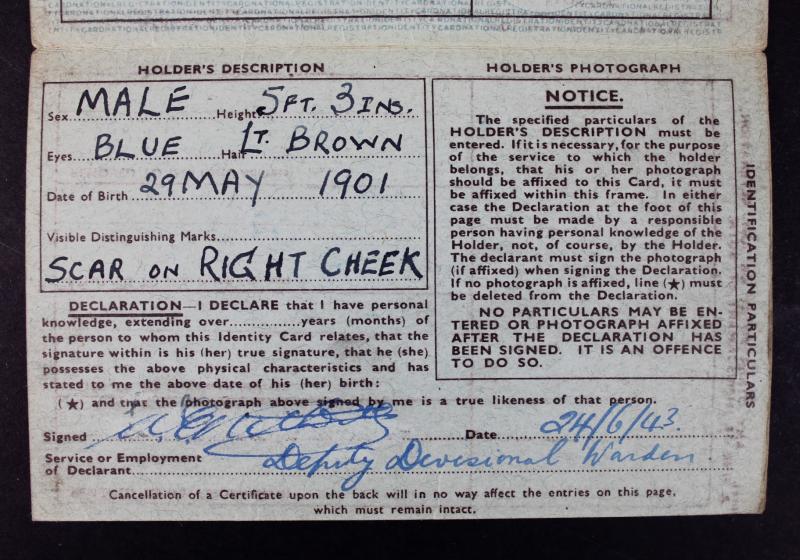 HOLDER'S DESCRIPTION
Sex MALE Height 5FT. 3INS.
Eyes BLUE Hair LT. BROWN
Date of Birth 29 MAY 1901
Visible Distinguishing Marks
SCAR ON RIGHT CHEEK
DECLARATION—I DECLARE that I have personal
knowledge, extending over..............years (months) of
the person to whom this Identity Card relates, that the
signature within is his (her) true signature, that he (she)
possesses the above physical characteristics and has
stated to me the above date of his (her) birth:
HOLDER'S PHOTOGRAPH
NOTICE.
The specified particulars of the
HOLDER'S DESCRIPTION must be
entered. If it is necessary, for the purpose
of the service to which the holder
belongs, that his or her photograph
should be affixed to this Card, it must
be affixed within this frame. In either
case the Declaration at the foot of this
page must be made by a responsible
person having personal knowledge of the
Holder, not, of course, by the Holder.
The declarant must sign the photograph
(if affixed) when signing the Declaration.
If no photograph is affixed, line (★) must
be deleted from the Declaration.
NO PARTICULARS MAY BE EN-
TERED OR PHOTOGRAPH AFFIXED
AFTER THE DECLARATION HAS
BEEN SIGNED. IT IS AN OFFENCE
TO DO SO.
IDENTIFICATION PARTICULARS
(★) and that the photograph above signed by me is a true likeness of that person.
Signed Date 24/6/43.
Service or Employment
of Declarant Deputy Devisional Warden
Cancellation of a Certificate upon the back will in no way affect the entries on this page,
which must remain intact.